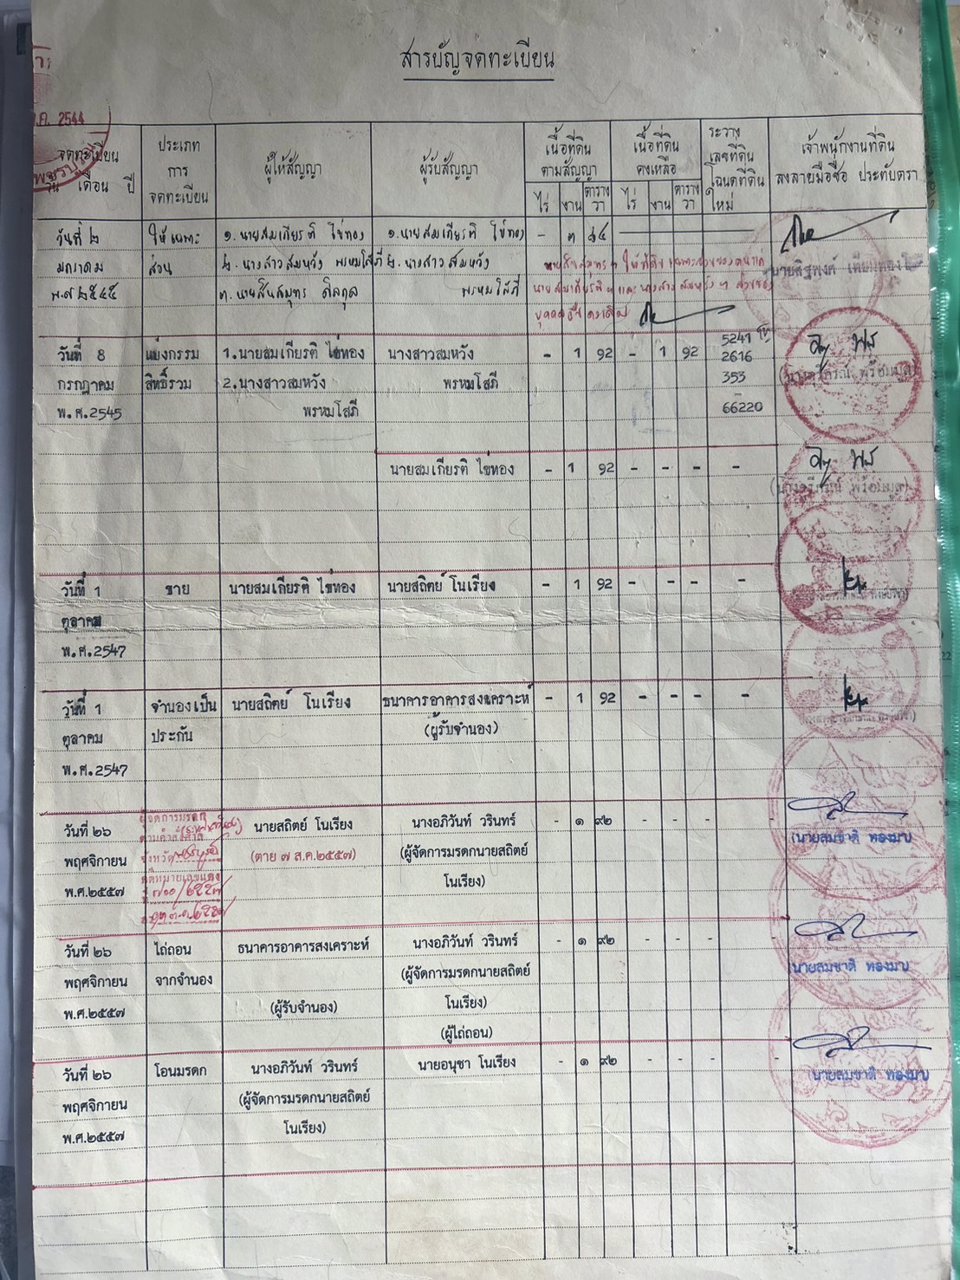 สารบัญจดทะเบียน
ค. 2544
จดทะเบียน
วัน เดือน ปี
ประเภท
การ
จดทะเบียน
ผู้ให้สัญญา
ผู้รับสัญญา
เนื้อที่ดิน
ตามสัญญา
ไร่ งาน ตาราง
วา
เนื้อที่ดิน
คงเหลือ
ไร่ งาน ตาราง
วา
ระวาง
เลขที่ดิน
โฉนดที่ดิน
ใหม่
เจ้าพนักงานที่ดิน
ลงลายมือชื่อ ประทับตรา
วันที่ ๒ ให้เฉพาะ ๑. นายสมเกียรติ ไข่ทอง ๑. นายสมเกียรติ ไข่ทอง - ๓ ๘๔
มกราคม ส่วน ๒. นางสาวสมหวัง พรหมโสภี ๒. นางสาวสมหวัง
พ.ศ. ๒๕๔๕ ๓. นายสินสมุทร ดิลกุล พรหมโสภี
วันที่ 8 แบ่งกรรม 1. นายสมเกียรติ ไข่ทอง นางสาวสมหวัง - 1 92 - 1 92 5241
กรกฎาคม สิทธิ์รวม 2. นางสาวสมหวัง พรหมโสภี 2616
พ.ศ. 2545 พรหมโสภี 353
-
66220
นายสมเกียรติ ไข่ทอง - 1 92 - - - -
วันที่ 1 ขาย นายสมเกียรติ ไข่ทอง นายสถิตย์ โนเรียง - 1 92 - - - -
ตุลาคม
พ.ศ. 2547
วันที่ 1 จำนองเป็น นายสถิตย์ โนเรียง ธนาคารอาคารสงเคราะห์ - 1 92 - - - -
ตุลาคม ประกัน (ผู้รับจำนอง)
พ.ศ. 2547
วันที่ ๒๖ ผู้จัดการมรดก นายสถิตย์ โนเรียง นางอภิวันท์ วรินทร์ - ๑ ๙๒ - - - -
พฤศจิกายน ตามคำสั่งศาล (ตาย ๗ ส.ค.๒๕๕๗) (ผู้จัดการมรดกนายสถิตย์
พ.ศ.๒๕๕๗ จังหวัด โนเรียง)
คดีหมายเลขแดง
(นายสมชาติ ทองมาบ)
วันที่ ๒๖ ไถ่ถอน ธนาคารอาคารสงเคราะห์ นางอภิวันท์ วรินทร์ - ๑ ๙๒ - - - -
พฤศจิกายน จากจำนอง (ผู้จัดการมรดกนายสถิตย์
พ.ศ.๒๕๕๗ (ผู้รับจำนอง) โนเรียง)
(ผู้ไถ่ถอน)
นายสมชาติ ทองมาบ
วันที่ ๒๖ โอนมรดก นางอภิวันท์ วรินทร์ นายอนุชา โนเรียง - ๑ ๙๒ - - - -
พฤศจิกายน (ผู้จัดการมรดกนายสถิตย์
พ.ศ.๒๕๕๗ โนเรียง)
นายสมชาติ ทองมาบ